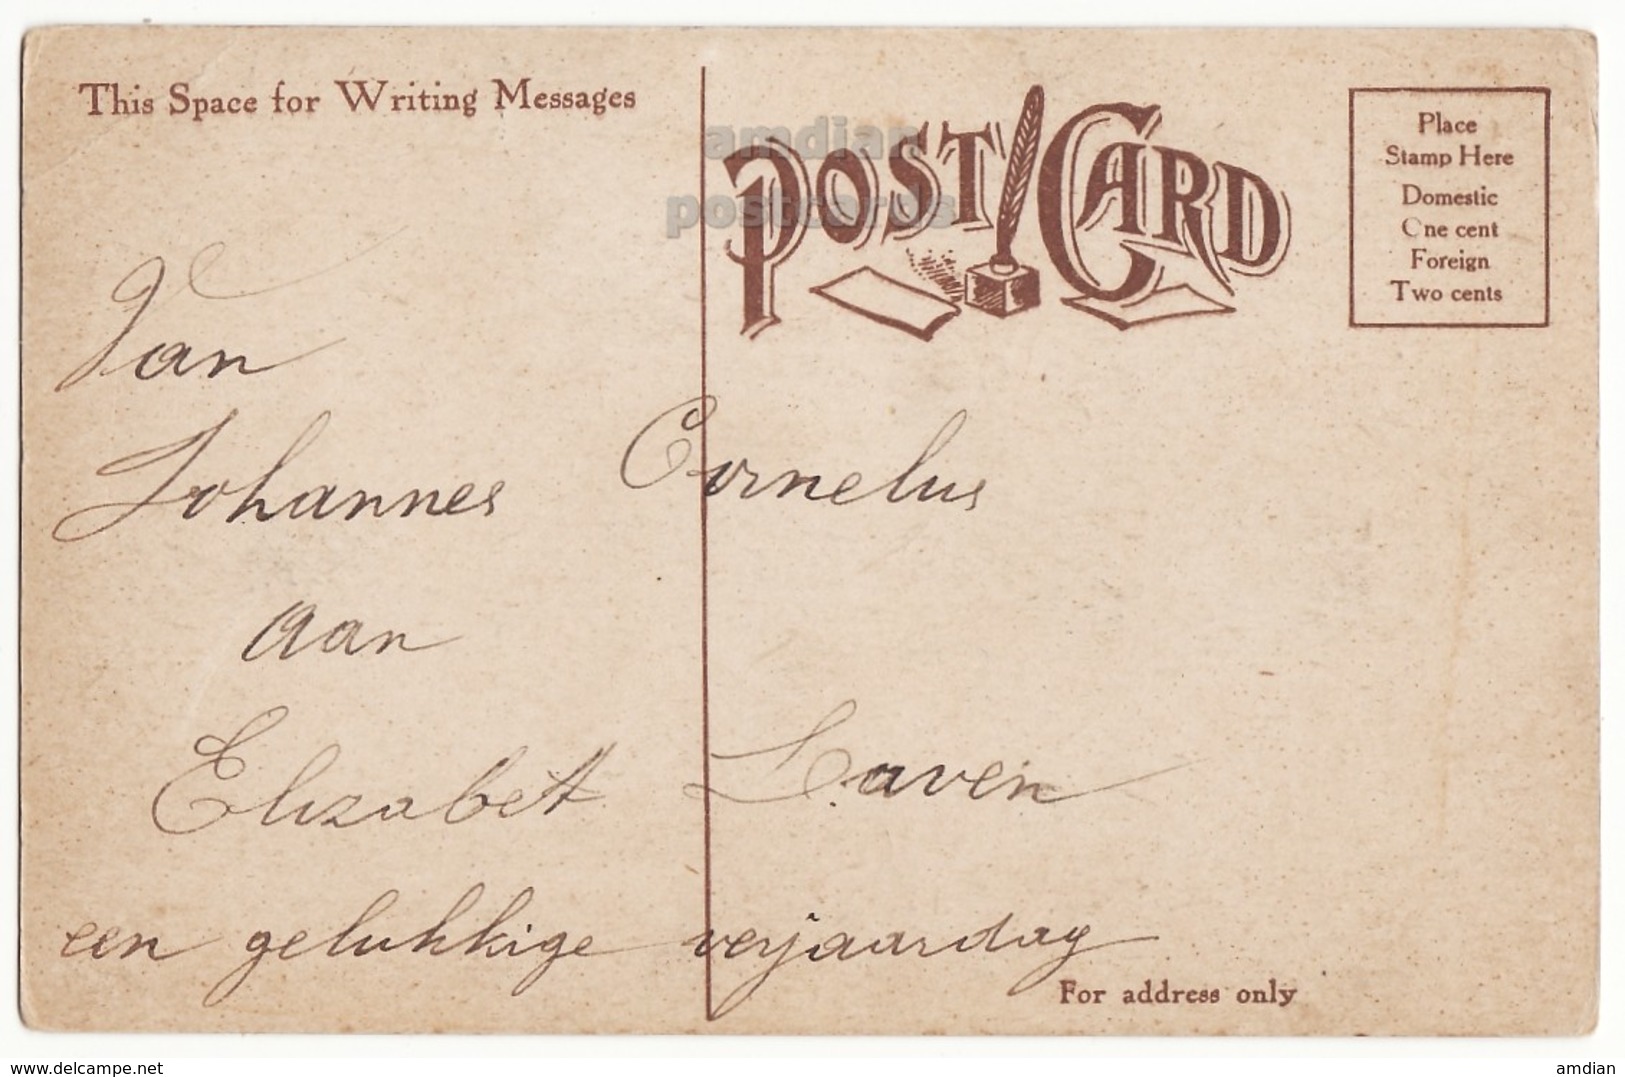 This Space for Writing Messages
POST CARD
Place
Stamp Here
Domestic
One cent
Foreign
Two cents
amdian
postcards
Van
Johannes Cornelus
aan
Elizabet Laven
een gelukkige verjaardag
For address only
www.delcampe.net
amdian